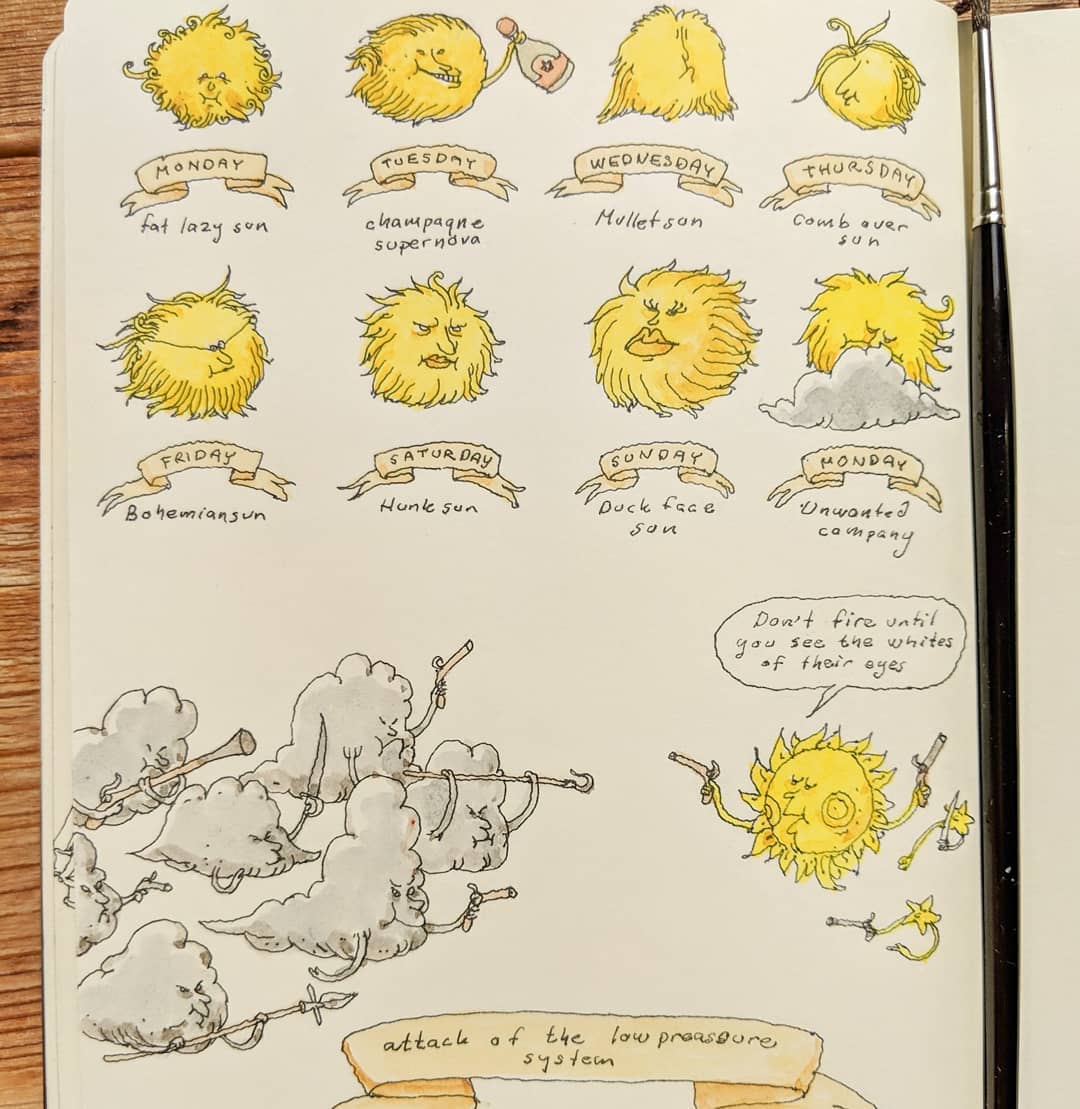 MONDAY
fat lazy sun
TUESDAY
champagne
supernova
WEDNESDAY
Mulletsun
THURSDAY
Comb over
sun
FRIDAY
Bohemiansun
SATURDAY
Hunk sun
SUNDAY
Duck face
sun
MONDAY
Unwanted
company
Don't fire until
you see the whites
of their eyes
attack of the low preassure
system